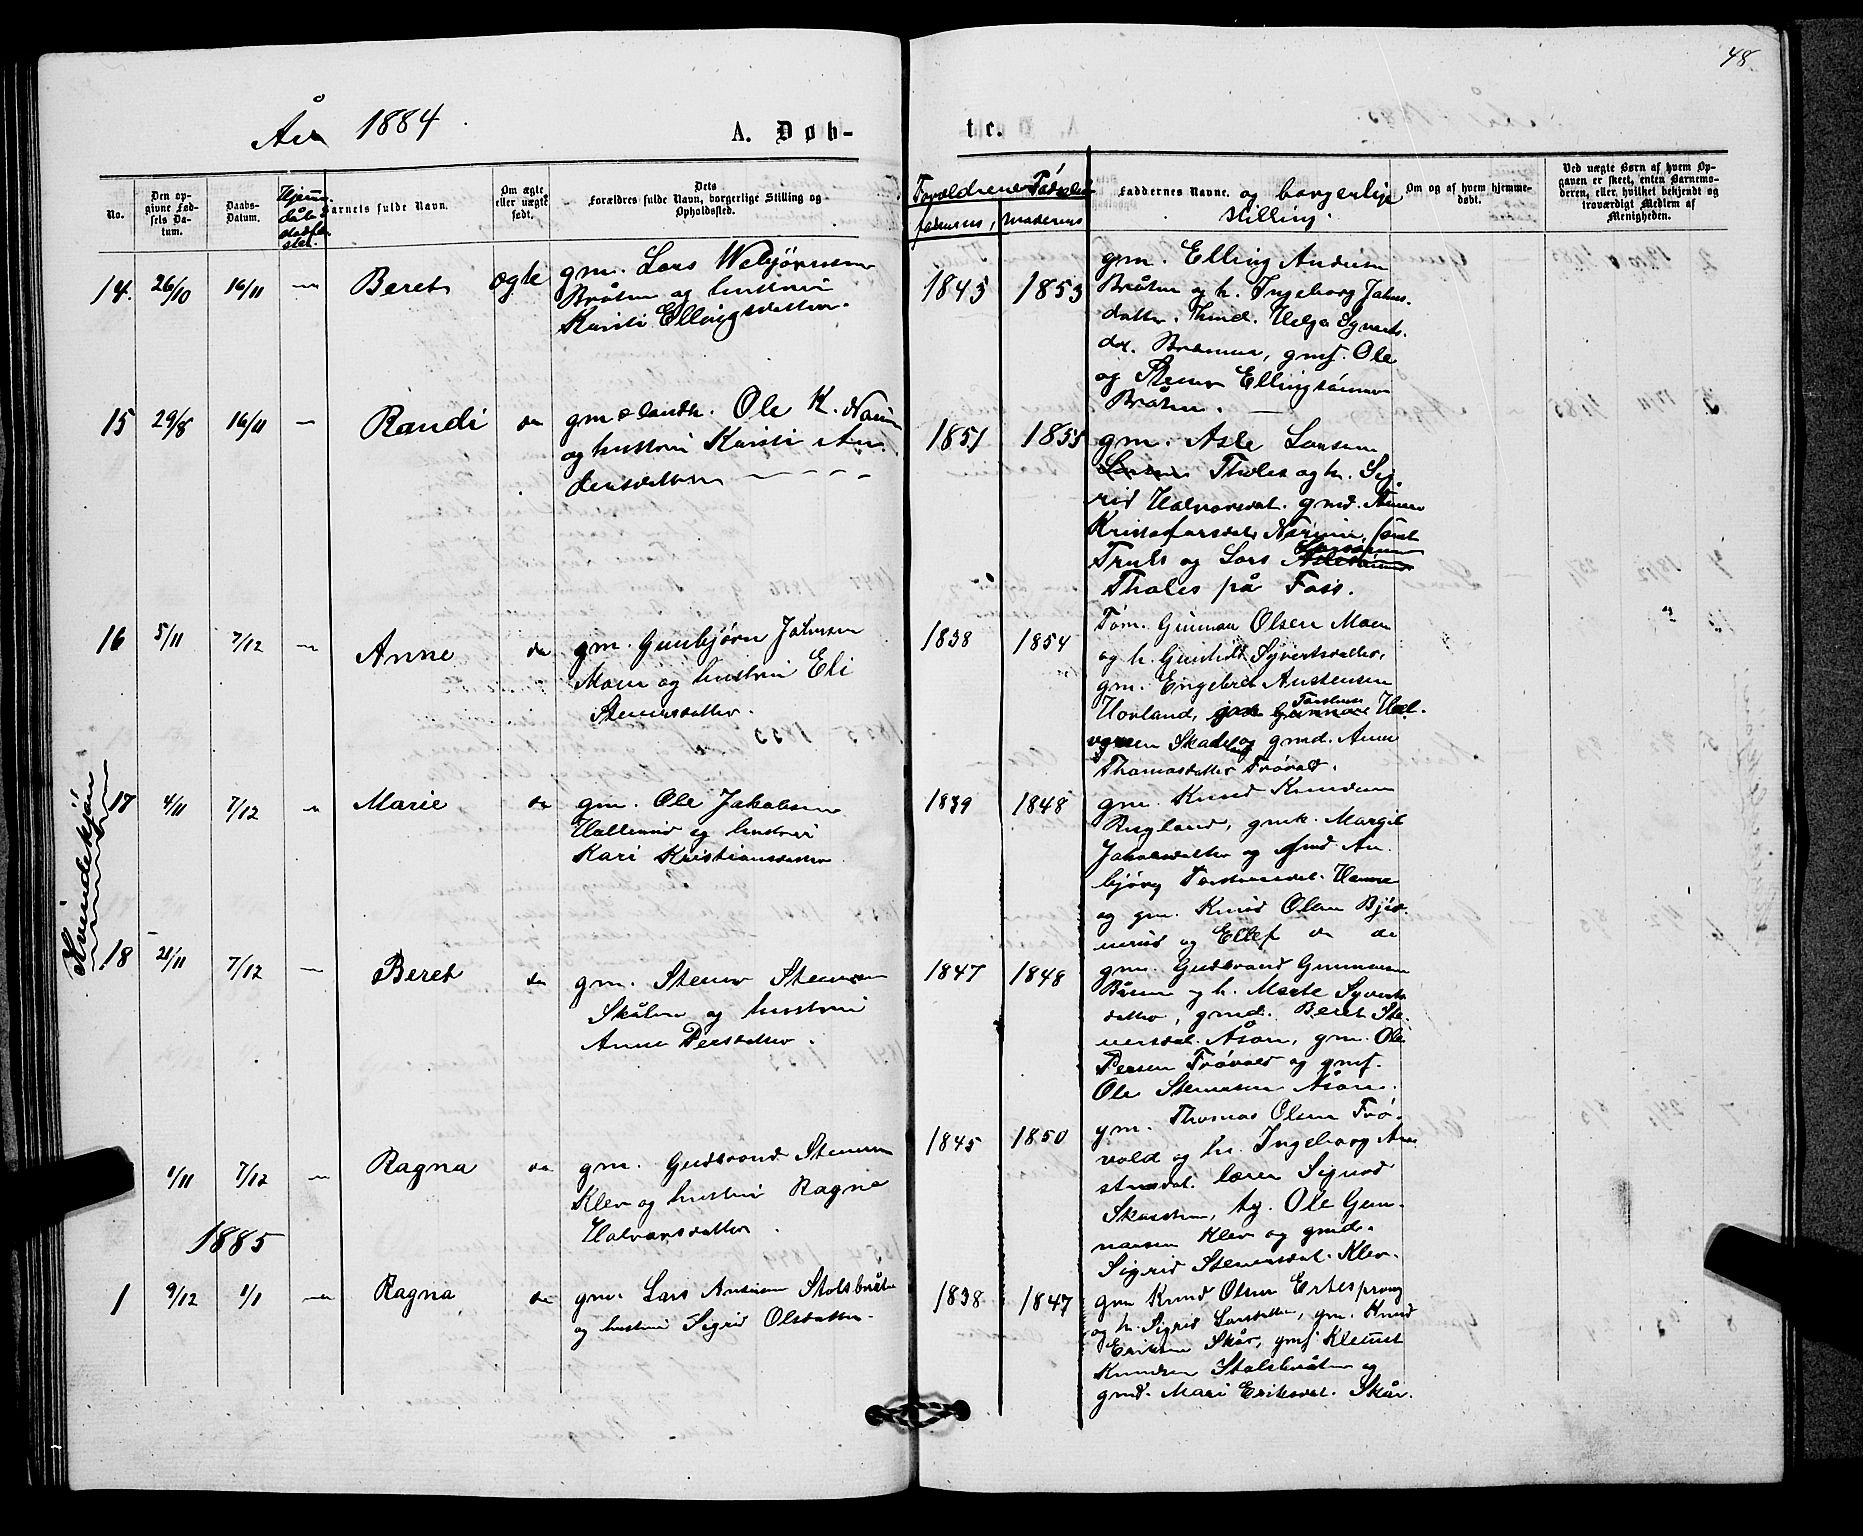 48
År 1884
A. Døb-
te.
No.
Den op-
givne Fød-
sels Da-
tum.
Daabs-
Datum.
Hjemme
døbt
stadfæ-
stet.
Barnets fulde Navn.
Om ægte
eller uægte
født.
Dets
Forældres fulde Navn, borgerlige Stilling og
Opholdssted.
Forældrenes Fødselsaar
faderens, moderens
Faddernes Navne. og borgerlige
stilling.
Om og af hvem hjemme-
døbt.
Ved uægte Børn af hvem Op-
gaven er skeet, enten Barnemo-
deren, eller, hvilket bekjendt og
troværdigt Medlem af
Menigheden.
14. 26/10 16/11 — Beret ægte
gm. Lars Webjørnsen
Bråten og hustru
Kristi Ellingsdatter.
1845 1853
gm. Elling Andersen
Bråten og h. Ingeborg Johns-
datter. Helga Syverts-
dat. gmf. Ole
og Stener Ellingsønner
Bråten. —
15 29/8 16/11 — Randi do
gm Ole K. Narum
og hustru Kristi An-
dersdatter — — — —
1851 1855
gm. Asle Larsen
Larsen Tholes og h. Sig-
rid Halvorsdat. gmd.
Kristofersdat. Narum,
Truls og Lars Larssønner
Tholes på Foss.
16 5/11 7/12 — Anne do
gm. Gunbjørn Johnsen
Moen og hustru Eli
Stenersdatter.
1838 1854
Tøm. Gunnar Olsen Moen
og h. Gunhild Syvertsdatter,
gm. Engebret Austensen
Hovland, Torsten Hal-
vorsen og gmd. Anne
Thomasdatter Trøvold.
Kvindekjøn
17 4/11 7/12 — Marie do
gm. Ole Jakobsen
Hallerud og hustru
Kari Kristiansdatter.
1839 1848
gm. Knud Knudsen
Rugland, gmk. Margit
Jakobsdatter og gmd An-
bjørg Torstensdat.
og gm. Knud Olsen Bjør-
nerud og Ellef do do
18 21/11 7/12 — Beret do
gm. Stener Stenersen
Skålen og hustru
Anne Persdatter.
1847 1848
gm. Gudbrand Gunnarsen
og h. Marte Syverts-
datter, gmd. Beret Ste-
nersdat. Åsan, gm. Ole
Persen Trøvold og gmf.
Ole Stenersen Åsan.
1/11 7/12 — Ragna do
gm. Gudbrand Stenersen
Klev og hustru Ragne
Halvorsdatter.
1845 1850
gm. Thomas Olsen Trø-
vold og h. Ingeborg Aus-
stensdat. lærer Sigurd
Skarsten, tg. Ole Gun-
narsen Klev og gmd.
Sigrid Stenersdat. Klev.
1885
1 9/12 1/1 — Ragna do
gm. Lars Andersen Stolsbråten
og hustru Sigrid Olsdatter.
1838 1847
gm Knud Olsen Ertesprang
og h. Sigrid Larsdatter, gm. Knud
Eriksen Skår, gmf. Klemet
Knudsen Stolsbråten og
gmd. Mari Eriksdat. Skår.